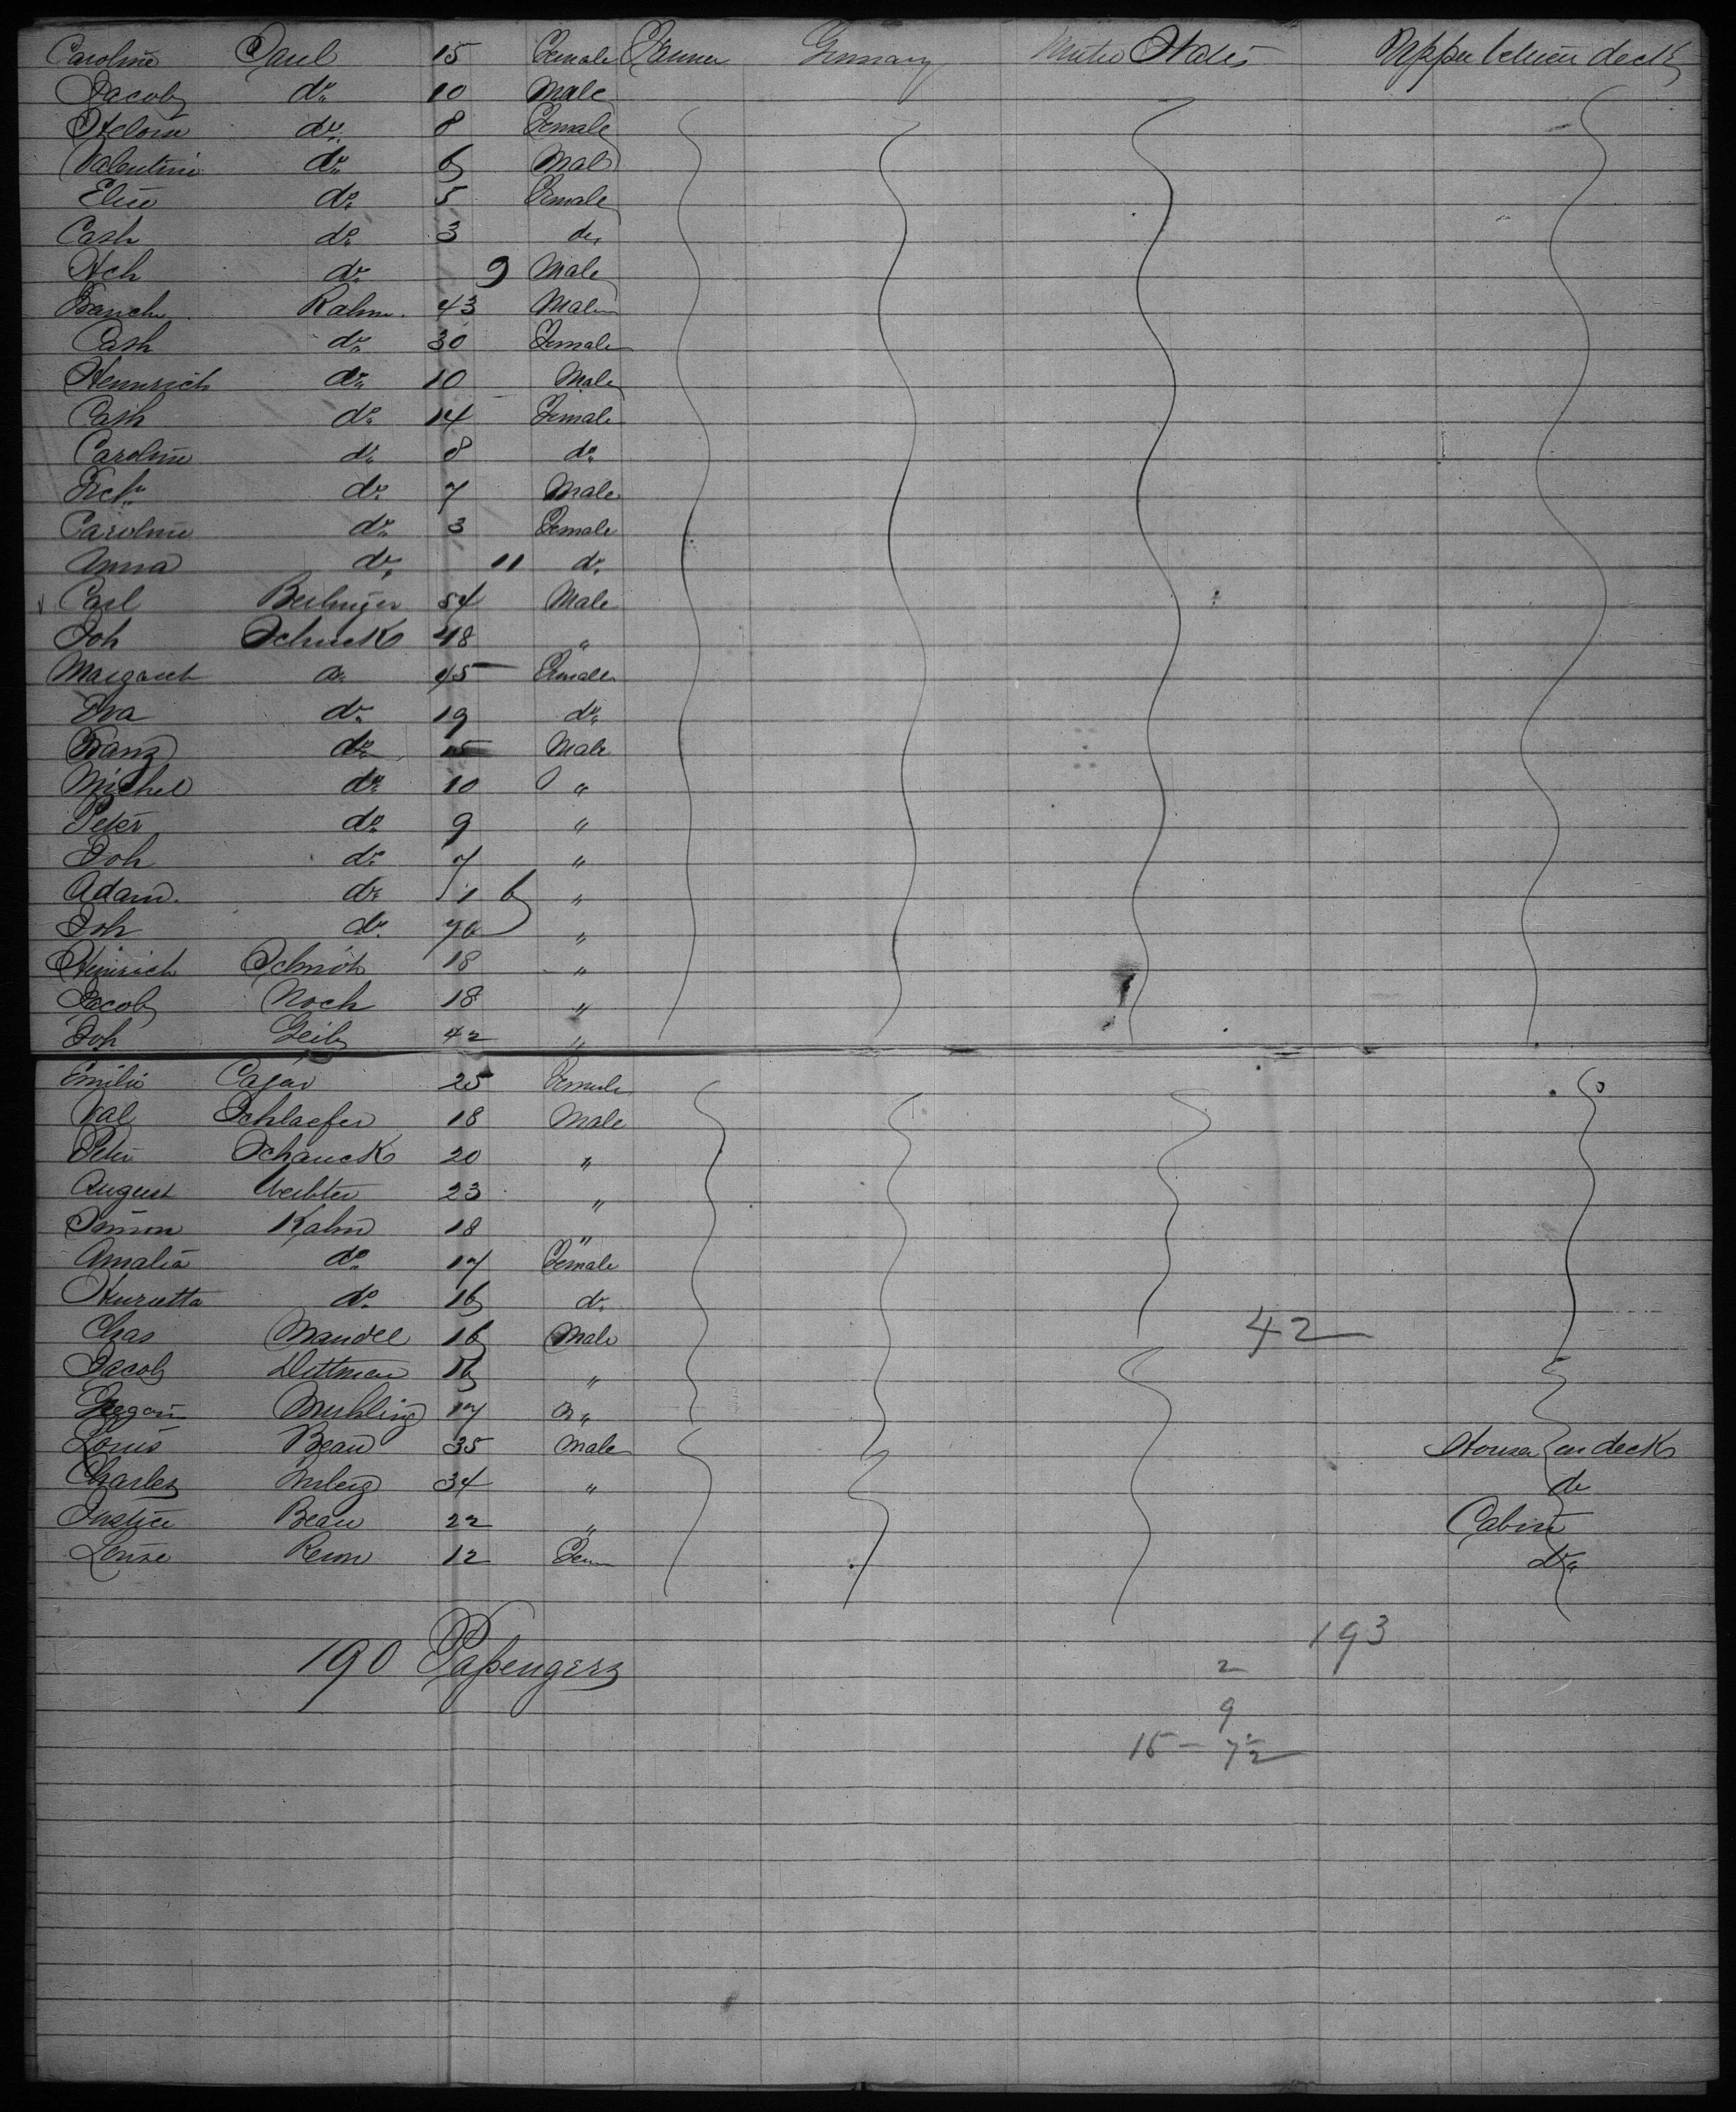 Caroline Paul 15 Female Farmer Germany United States Upper between decks
Jacob do 10 Male
do 8 Female
Valentine do 6 Male
Elise do 5 Female
Cath do 3 do
Hch do 9 Male
Rahm 43 Male
Cath do 30 Female
Heinrich do 10 Male
Cath do 14 Female
Caroline do 8 do
do 7 Male
Caroline do 3 Female
Anna do 11 do
Carl 54 Male
Joh Schuck 48 "
Margareth do 45 Female
Eva do 19 do
Franz do 15 Male
Michel do 10 "
Peter do 9 "
Joh do 7 "
Adam do 1 6 "
Joh do "
Heinrich 18 "
Jacob Noch 18 "
Joh Geib 42 "
Emilie 25 Female
Val Schlaefer 18 Male
Peter Schauck 20 "
August 23 "
Simon Kahn 18 "
Amalia do 17 Female
Henrietta do 16 do
Chas Mandel 16 Male 42
Jacob Dittman 16 "
17 "
Louis Beau 35 Male House on deck
Charles 34 " do
Justice Beau 22 " Cabin
Louise 12 Fem do
193
190 Paſsengers
2
9
15 - 72